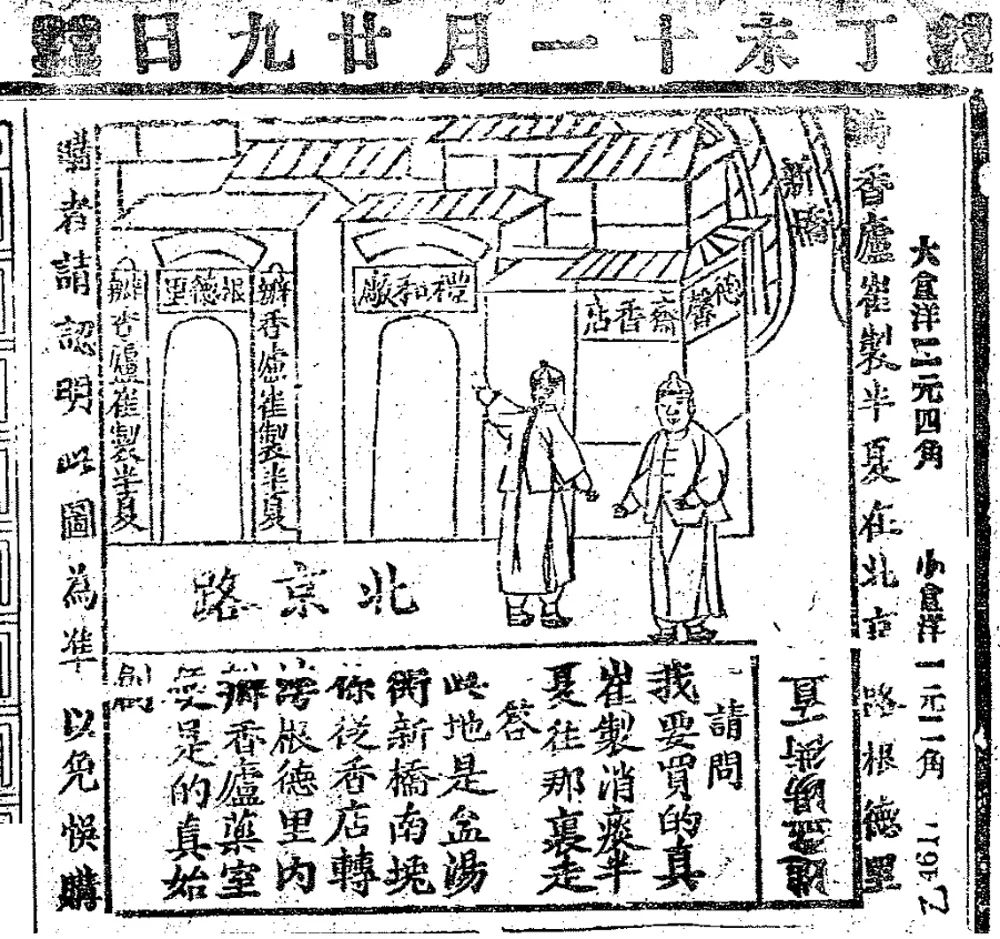 丁未十一月廿九日
大盒洋二元四角 小盒洋一元二角
瓣香廬崔製半夏在北京路根德里
新橋
德馨齋香店
禮和廠
瓣香廬崔製半夏
根德里
瓣香廬崔製半夏
北京路
請問
我要買的真
崔製消痰半
夏往那裏走
答
此地是盆湯
衖新橋南堍
你從香店轉
灣根德里內
瓣香廬藥室
便是的真始
創
購者請認明此圖為準以免悞購